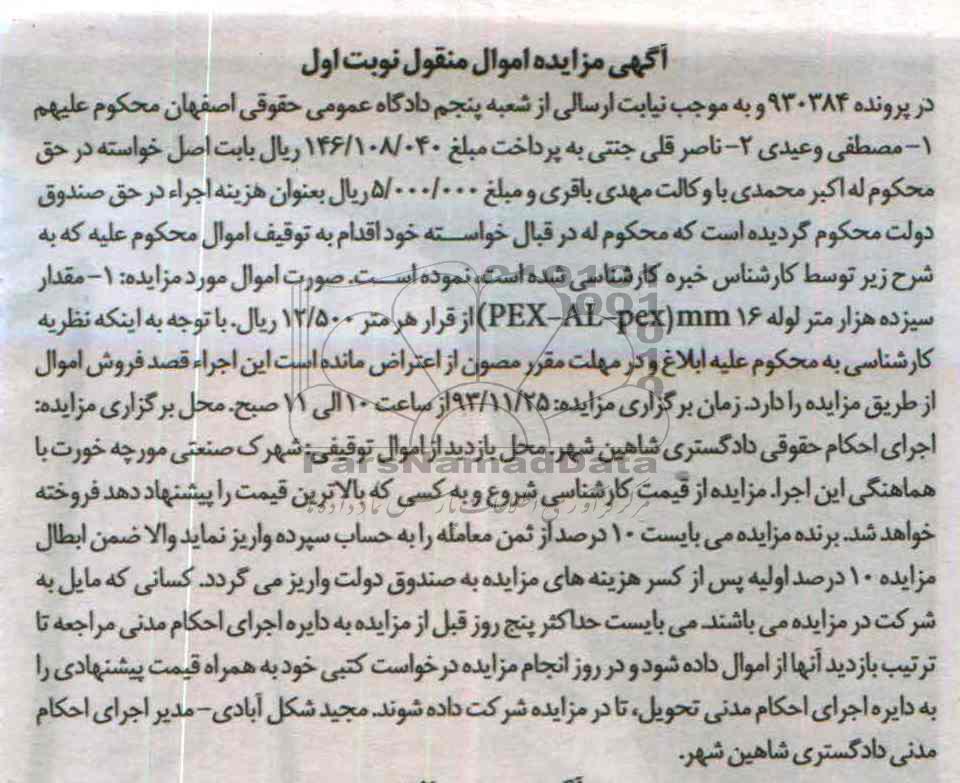 آگهی مزایده اموال منقول نوبت اول
در پرونده ۹۳۰۳۸۴ و به موجب نیابت ارسالی از شعبه پنجم دادگاه عمومی حقوقی اصفهان محکوم علیهم
۱- مصطفی وعیدی ۲- ناصر قلی جنتی به پرداخت مبلغ ۱۴۶/۱۰۸/۰۴۰ ریال بابت اصل خواسته در حق
محکوم له اکبر محمدی با وکالت مهدی باقری و مبلغ ۵/۰۰۰/۰۰۰ ریال بعنوان هزینه اجراء در حق صندوق
دولت محکوم گردیده است که محکوم له در قبال خواسته خود اقدام به توقیف اموال محکوم علیه که به
شرح زیر توسط کارشناس خبره کارشناسی شده است، نموده است. صورت اموال مورد مزایده: ۱- مقدار
سیزده هزار متر لوله ۱۶ mm(PEX-AL-pex) از قرار هر متر ۱۲/۵۰۰ ریال. با توجه به اینکه نظریه
کارشناسی به محکوم علیه ابلاغ و در مهلت مقرر مصون از اعتراض مانده است این اجراء قصد فروش اموال
از طریق مزایده را دارد. زمان برگزاری مزایده: ۹۳/۱۱/۲۵ از ساعت ۱۰ الی ۱۱ صبح. محل برگزاری مزایده:
اجرای احکام حقوقی دادگستری شاهین شهر. محل بازدید از اموال توقیفی: شهرک صنعتی مورچه خورت با
ParsNamadData
هماهنگی این اجرا. مزایده از قیمت کارشناسی شروع و به کسی که بالاترین قیمت را پیشنهاد دهد فروخته
خواهد شد. برنده مزایده می بایست ۱۰ درصد از ثمن معامله را به حساب سپرده واریز نماید والا ضمن ابطال
مزایده ۱۰ درصد اولیه پس از کسر هزینه های مزایده به صندوق دولت واریز می گردد. کسانی که مایل به
شرکت در مزایده می باشند. می بایست حداکثر پنج روز قبل از مزایده به دایره اجرای احکام مدنی مراجعه تا
ترتیب بازدید آنها از اموال داده شود و در روز انجام مزایده درخواست کتبی خود به همراه قیمت پیشنهادی را
به دایره اجرای احکام مدنی تحویل، تا در مزایده شرکت داده شوند. مجید شکل آبادی- مدیر اجرای احکام
مدنی دادگستری شاهین شهر.